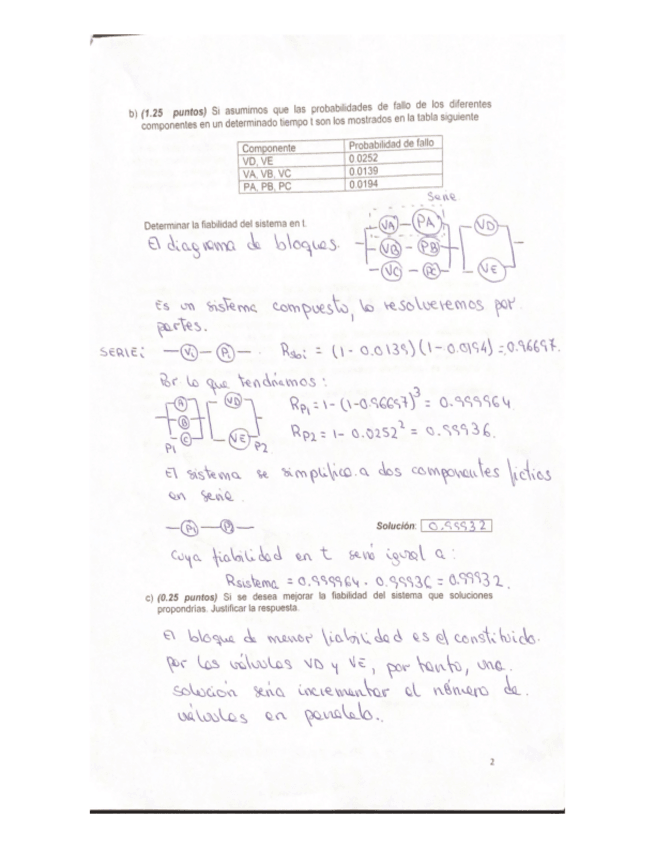 b) (1.25 puntos) Si asumimos que las probabilidades de fallo de los diferentes
componentes en un determinado tiempo t son los mostrados en la tabla siguiente
Componente Probabilidad de fallo
VD, VE 0.0252
VA, VB, VC 0.0139
PA, PB, PC 0.0194
Serie
Determinar la fiabilidad del sistema en t.
VA PA VD
El diagrama de bloques.
VB PB
VC PC VE
Es un sistema compuesto, lo resolveremos por
partes.
SERIE: Vi Pi . Rsbi = (1-0.0139)(1-0.0194)=0.96697.
Por lo que tendríamos:
A VD
B
C VE
P1 P2
Rp1 = 1-(1-0.96697)³ = 0.999964
Rp2 = 1-0.0252² = 0.99936.
El sistema se simplifica a dos componentes ficticios
en serie.
P1 P2 Solución: 0.99932
Cuya fiabilidad en t será igual a:
Rsistema = 0.999964 · 0.99936 = 0.99932.
c) (0.25 puntos) Si se desea mejorar la fiabilidad del sistema que soluciones
propondrías. Justificar la respuesta.
El bloque de menor fiabilidad es el constituido.
por las válvulas VD y VE, por tanto, una.
solución sería incrementar el número de.
válvulas en paralelo.
2